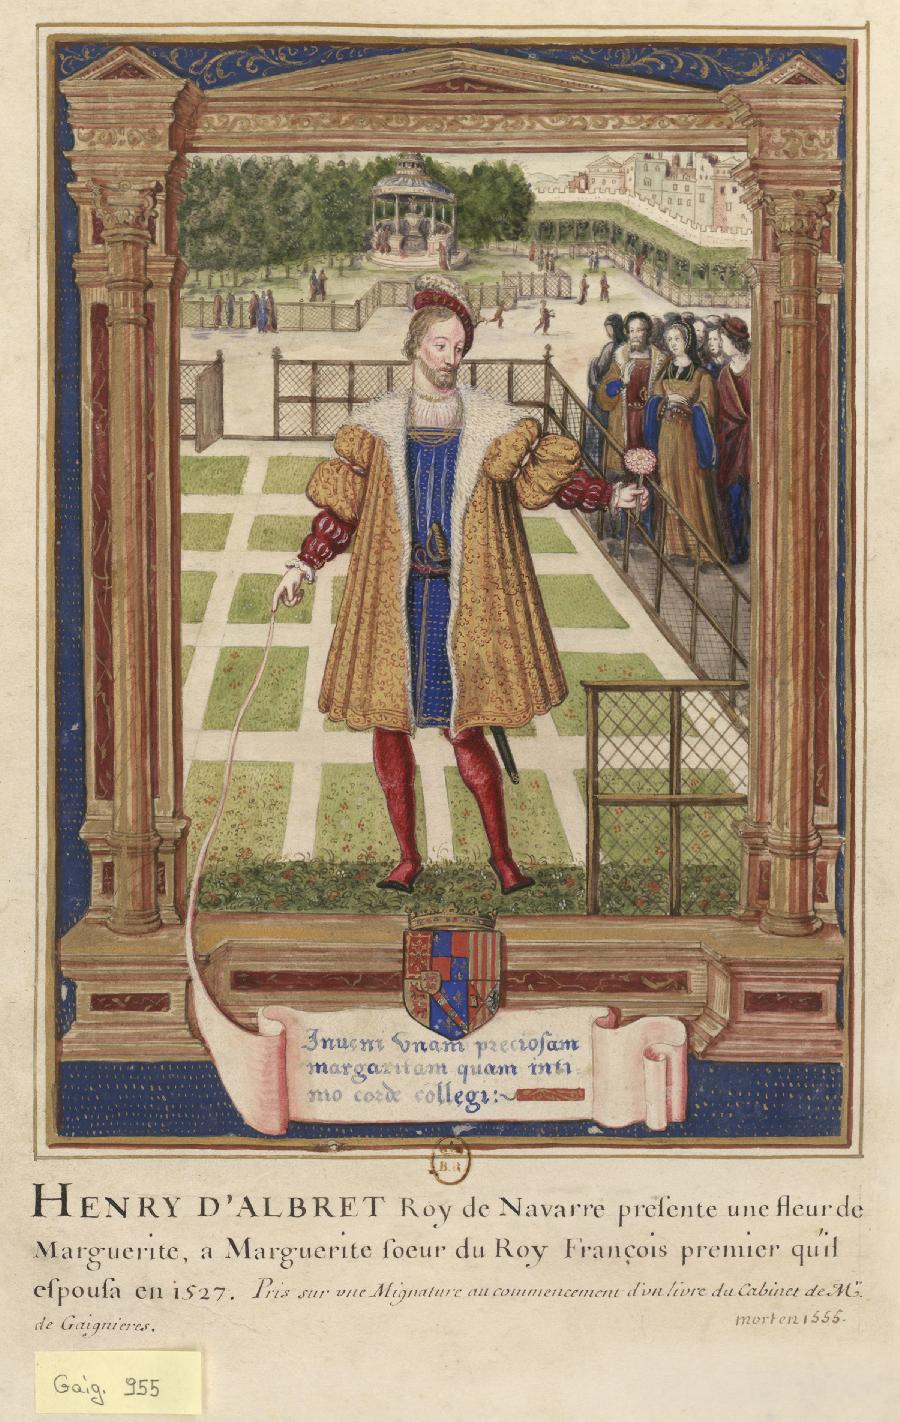 Inueni vnam preciosam
margaritam quam inti-
mo corde collegi:~
B.R
HENRY D'ALBRET Roy de Navarre preſente une fleur de
Marguerite, a Marguerite ſoeur du Roy François premier qu'il
eſpouſa en 1527. Pris sur vne Mignature au commencement d'vn livre du Cabinet de Mr.
de Gaignieres. mort en 1555.
Gaig. 955